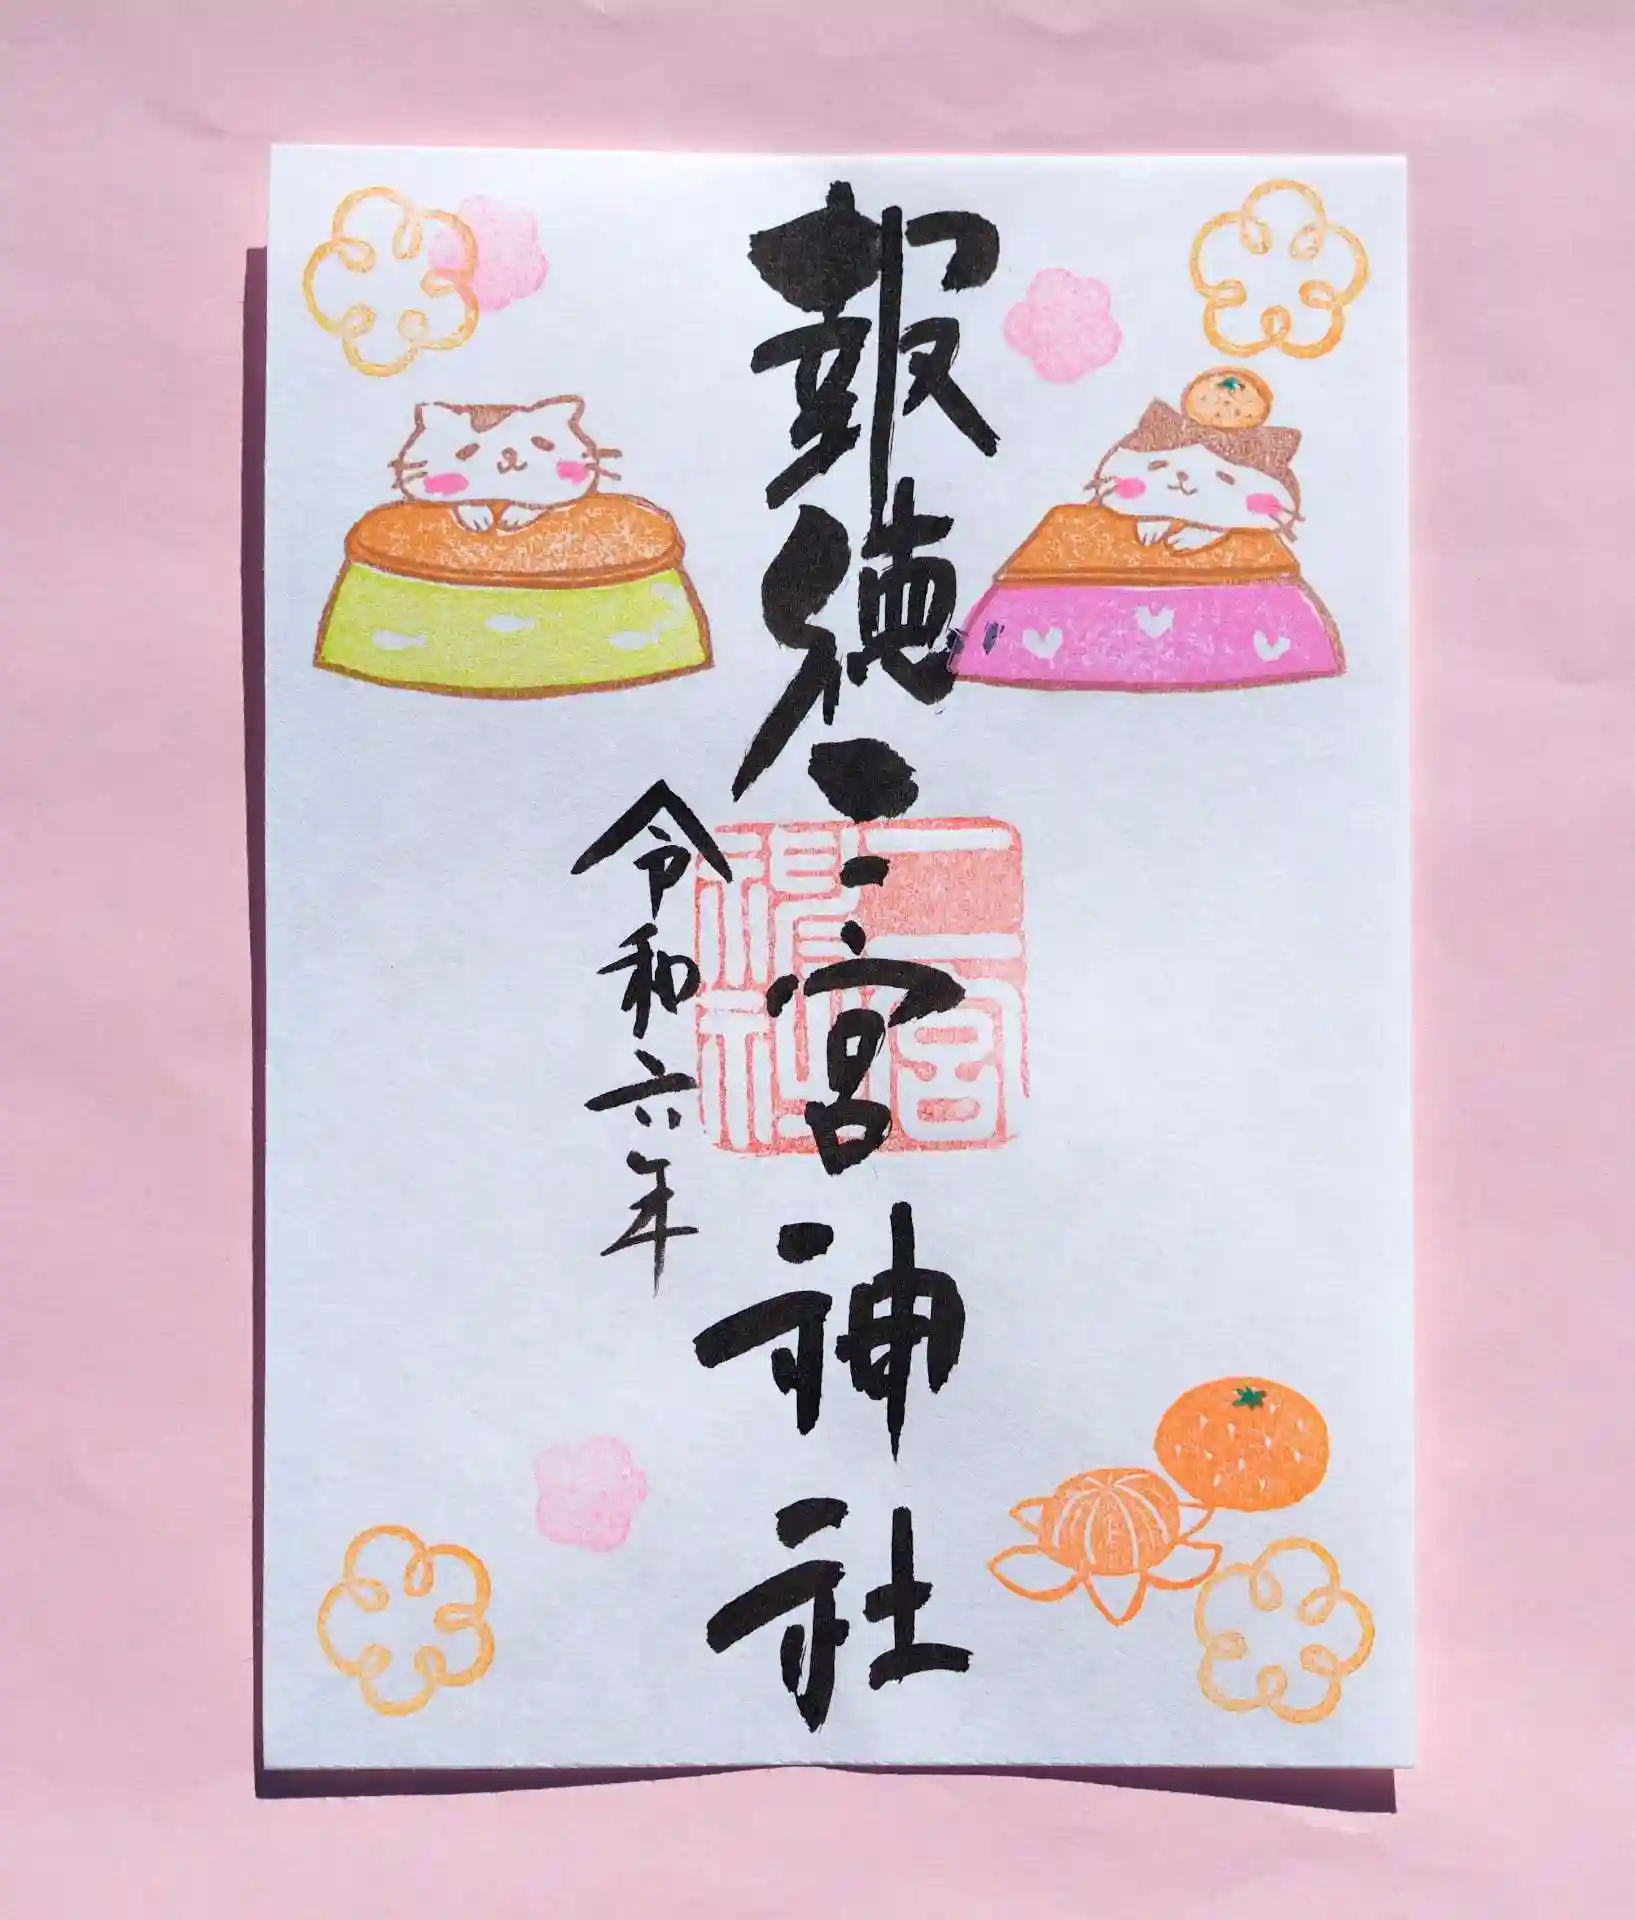 報徳二宮神社
二宮神社
令和六年